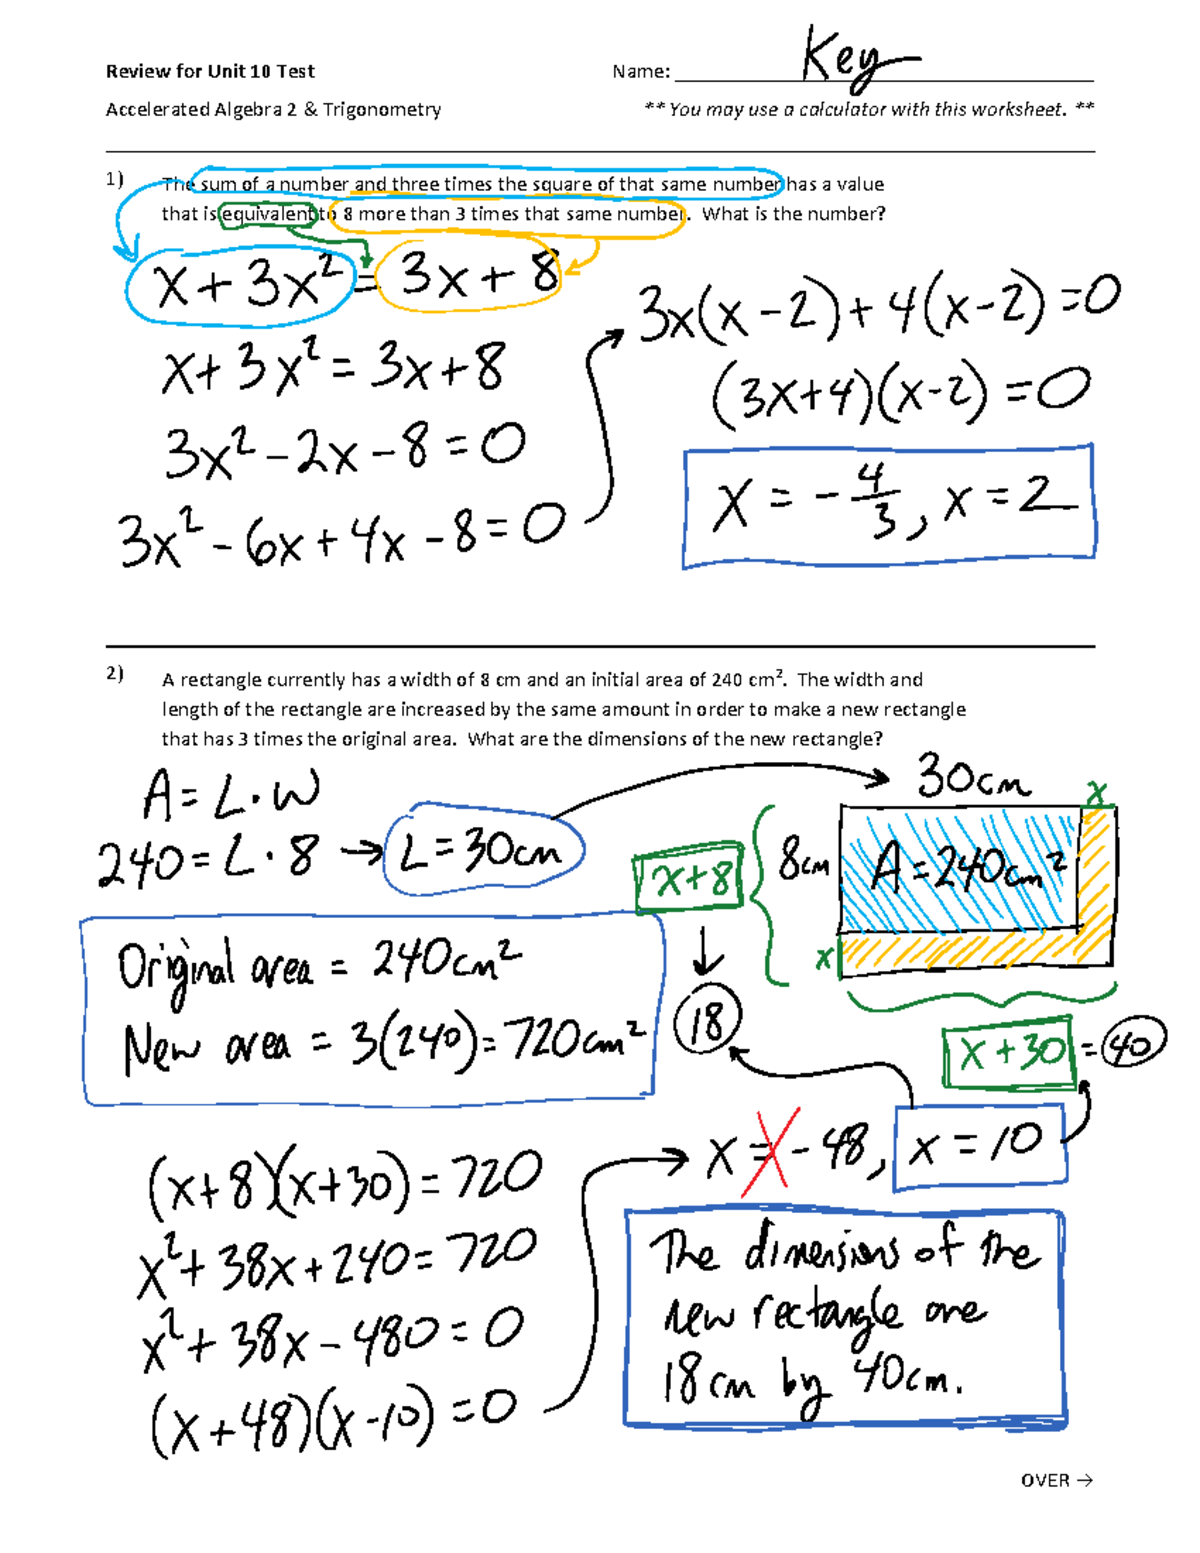 Review for Unit 10 Test
Name: Key
Accelerated Algebra 2 & Trigonometry
** You may use a calculator with this worksheet. **
1) The sum of a number and three times the square of that same number has a value
that is equivalent to 8 more than 3 times that same number. What is the number?
x + 3x² = 3x + 8
x + 3x² = 3x + 8
3x² - 2x - 8 = 0
3x² - 6x + 4x - 8 = 0
3x(x - 2) + 4(x - 2) = 0
(3x+4)(x-2) = 0
x = -4/3, x = 2
2) A rectangle currently has a width of 8 cm and an initial area of 240 cm². The width and
length of the rectangle are increased by the same amount in order to make a new rectangle
that has 3 times the original area. What are the dimensions of the new rectangle?
A = L · W
240 = L · 8 → L = 30cm
30cm
x
8cm
A = 240cm²
x
x+8
18
x + 30 = 40
Original area = 240cm²
New area = 3(240) = 720cm²
(x+8)(x+30) = 720
x² + 38x + 240 = 720
x² + 38x - 480 = 0
(x+48)(x-10) = 0
x = -48, x = 10
The dimensions of the
new rectangle are
18cm by 40cm.
OVER →